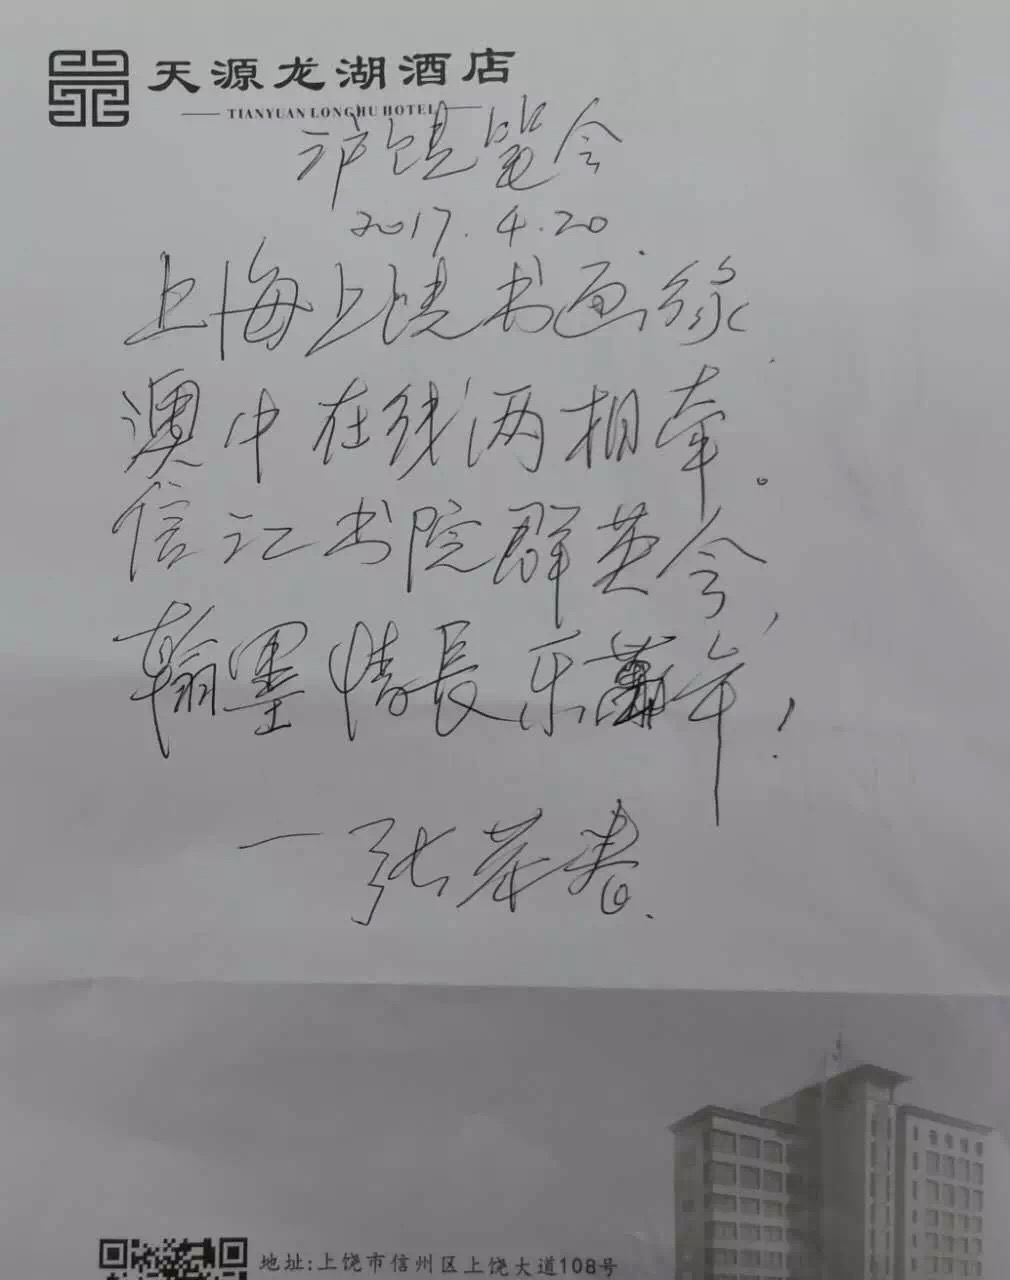 天源龙湖酒店
TIANYUAN LONGHU HOTEL
沪饶笔会
2017.4.20.
上海上饶书画缘
澳中在线两相牵。
信江书院群英会，
翰墨情長乐萬年！
一张萍春.
地址:上饶市信州区上饶大道108号